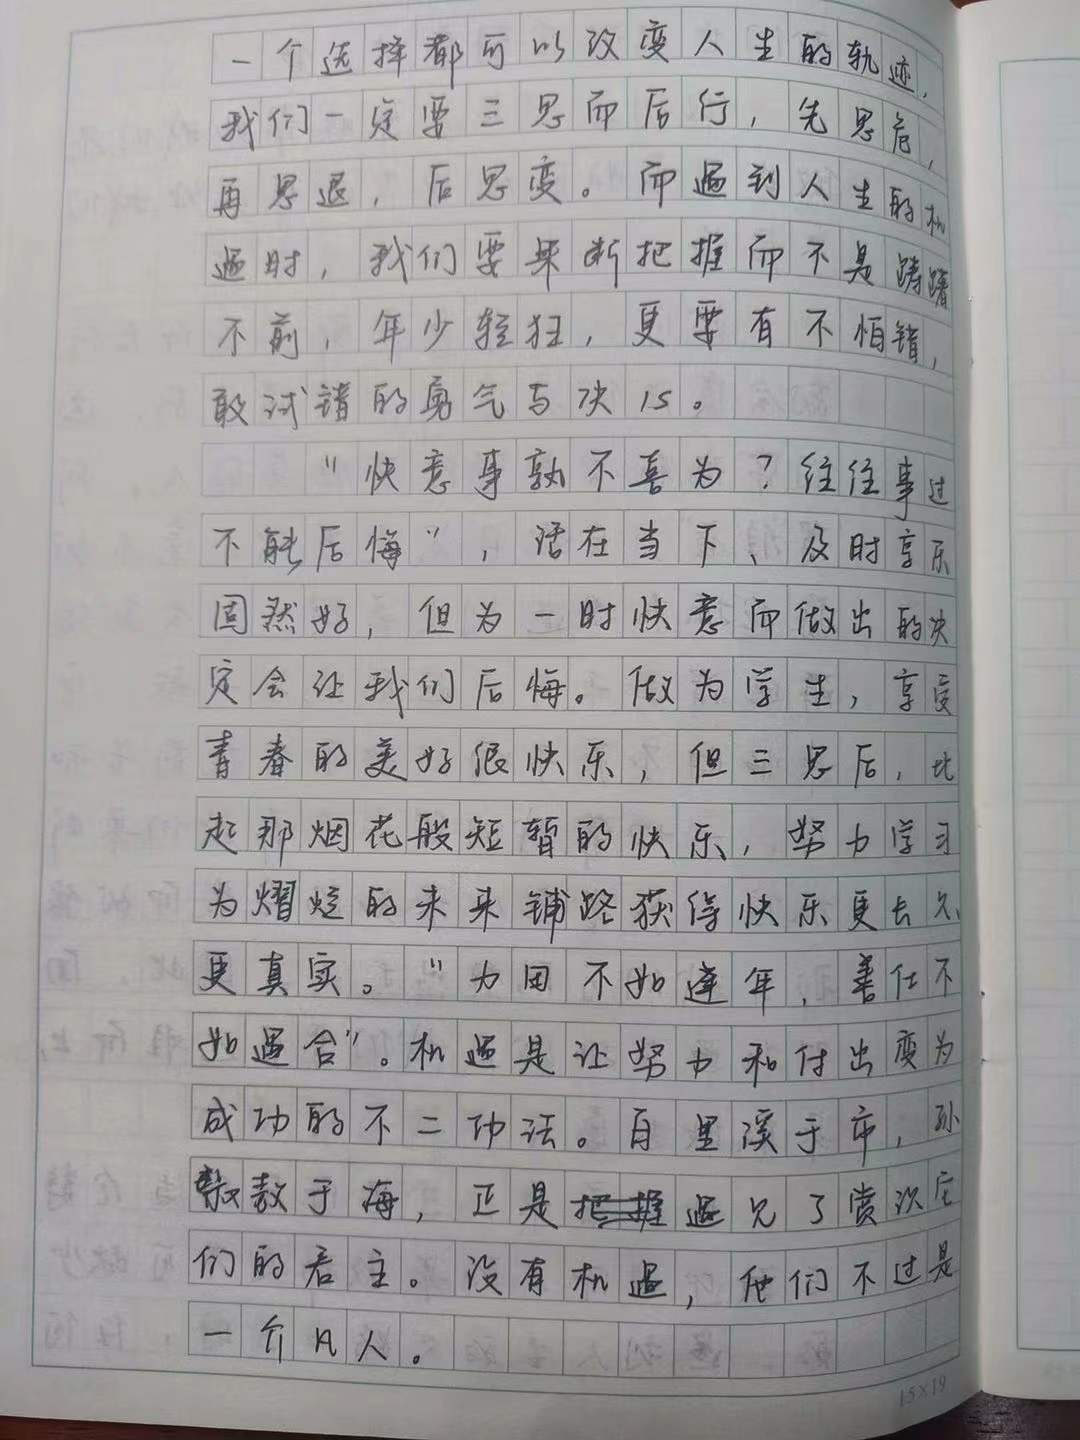 一个选择都可以改变人生的轨迹，
我们一定要三思而后行，先思危，
再思退，后思变。而遇到人生的机
遇时，我们要果断把握而不是踌躇
不前，年少轻狂，更要有不怕错，
敢试错的勇气与决心。
“快意事孰不喜为？往往事过
不能后悔”，活在当下、及时享乐
固然好，但为一时快意而做出的决
定会让我们后悔。做为学生，享受
青春的美好很快乐，但三思后，比
起那烟花般短暂的快乐，努力学习
为熠烂的未来铺路获得快乐更长久
更真实。“力田不如逢年，善仕不
如遇合”。机遇是让努力和付出变为
成功的不二功法。百里溪于市，孙
敖于海，正是遇见了赏识它
们的君主。没有机遇，他们不过是
一介凡人。
15×19